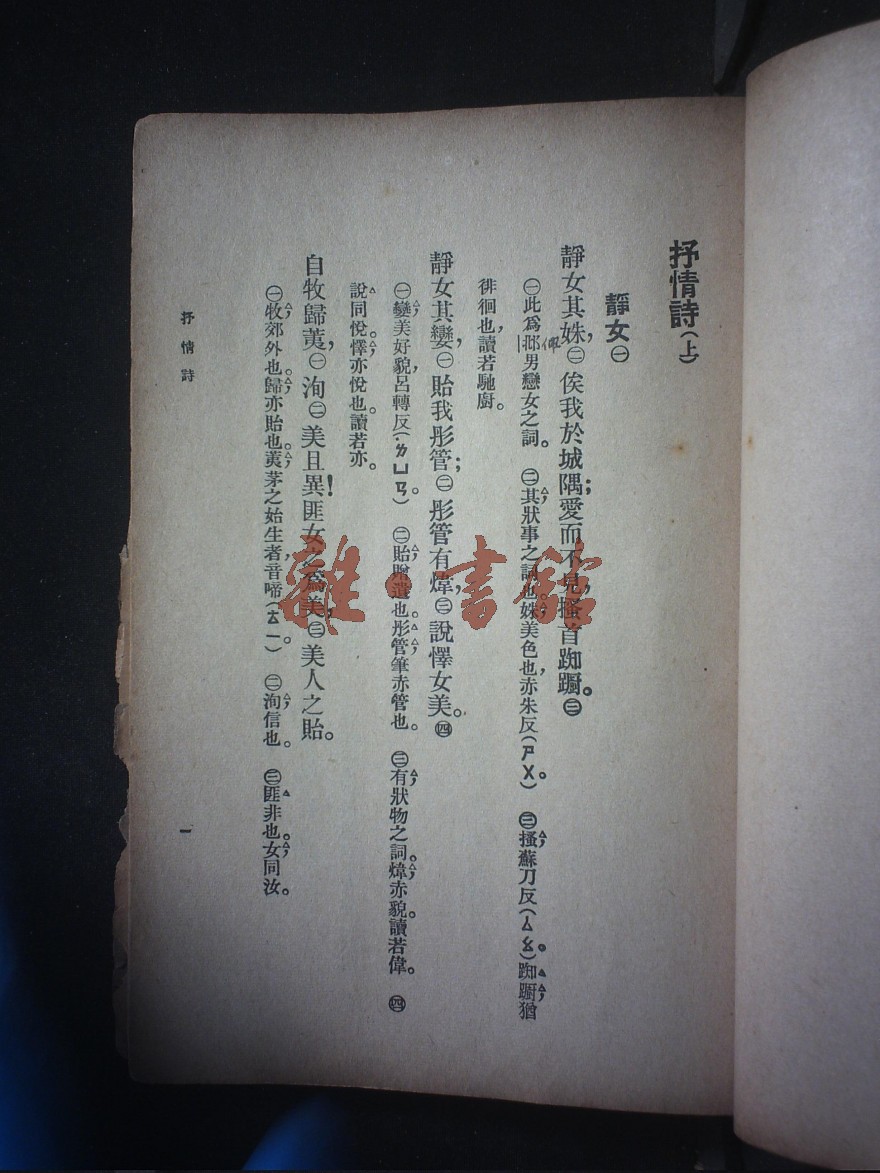 抒情詩(上)
靜女㊀
靜女其姝,㊁俟我於城隅;愛而不見,搔首踟躕。㊂
㊀此爲邶男戀女之詞。 ㊁其,狀事之詞也。姝,美色也,赤朱反(ㄕㄨ。) ㊂搔,蘇刀反(ㄙㄠ。)踟躕,猶
徘徊也,讀若馳廚。
靜女其孌,㊀貽我彤管;㊁彤管有煒,㊂說懌女美。㊃
㊀孌,美好貌,呂轉反(ㄌㄩㄢ。) ㊁貽,贈遺也。彤管,筆赤管也。 ㊂有,狀物之詞。煒,赤貌。讀若偉。 ㊃
說同悅。懌,亦悅也。讀若亦。
自牧歸荑,㊀洵㊁美且異!匪女之爲美,㊂美人之貽。
㊀牧,郊外也。歸,亦貽也。荑,茅之始生者,音啼(ㄊㄧ。) ㊁洵,信也。 ㊂匪,非也。女,同汝。
抒情詩
一
雜·書館